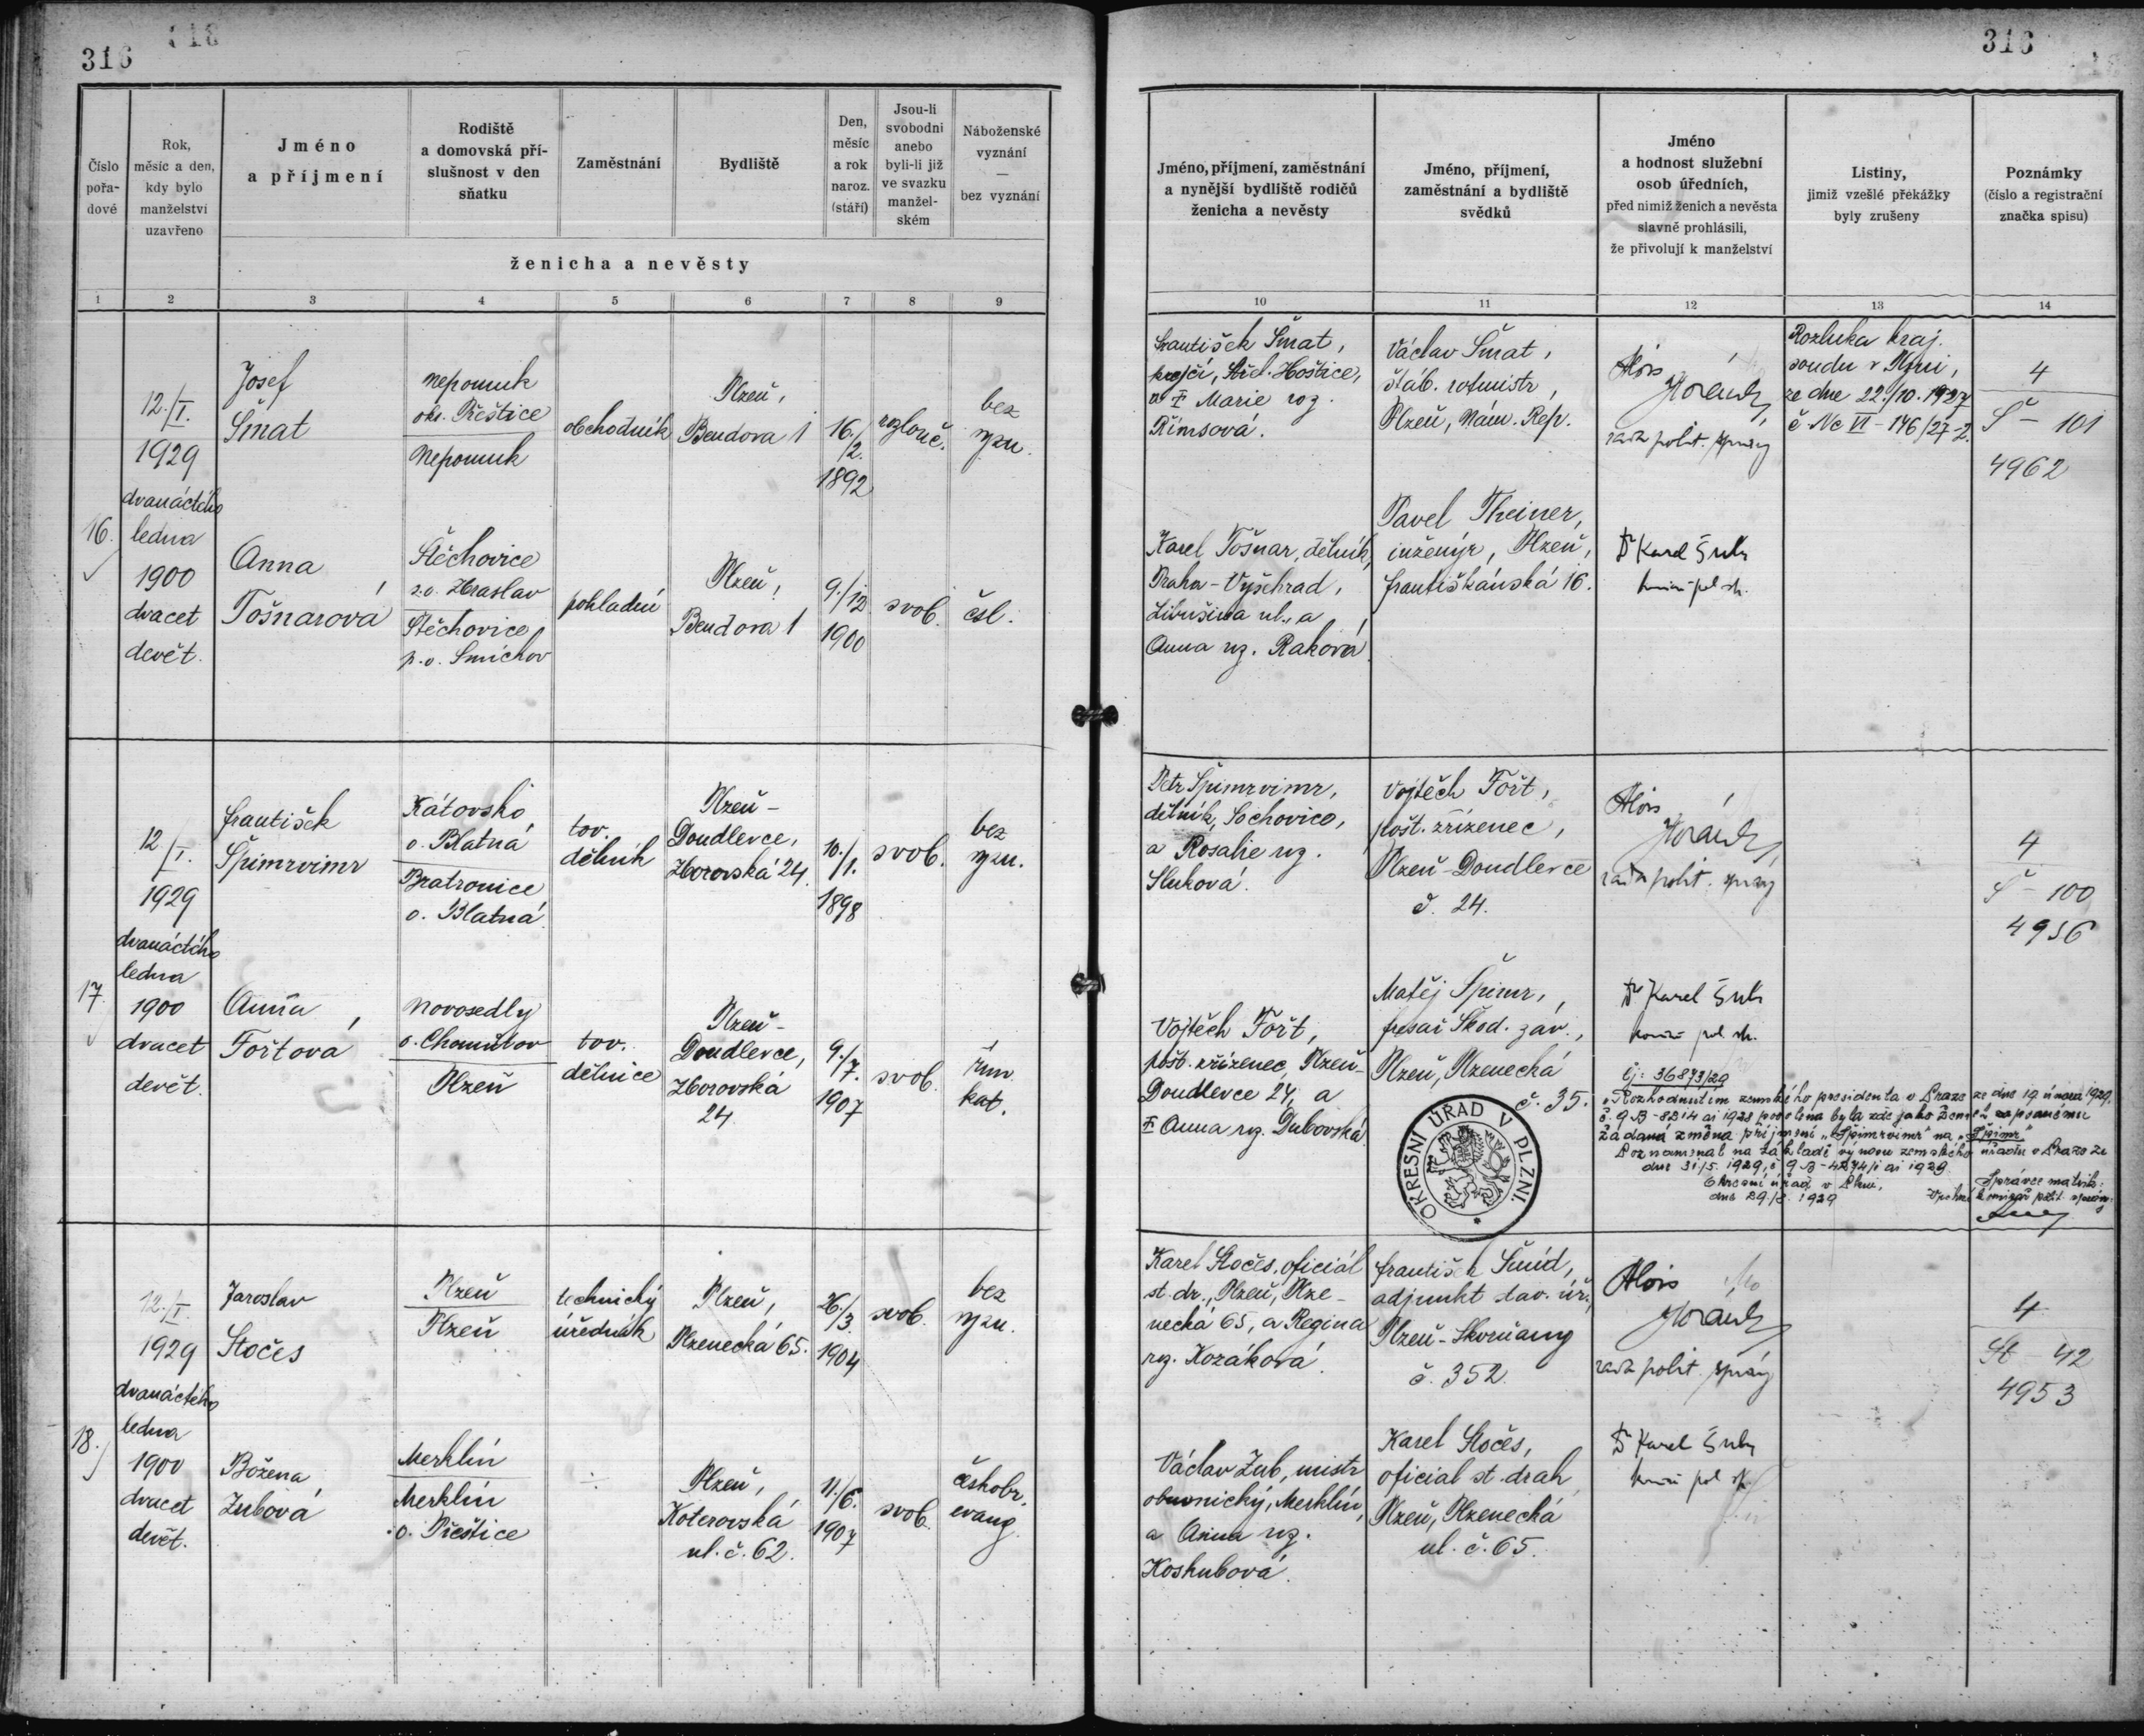 316
316
Číslo
pořa-
dové
Rok,
měsíc a den,
kdy bylo
manželství
uzavřeno
Jméno
a příjmení
Rodiště
a domovská pří-
slušnost v den
sňatku
Zaměstnání
Bydliště
Den,
měsíc
a rok
naroz.
(stáří)
Jsou-li
svobodni
anebo
byli-li již
ve svazku
manžel-
ském
Náboženské
vyznání
—
bez vyznání
ženicha a nevěsty
Jméno, příjmení, zaměstnání
a nynější bydliště rodičů
ženicha a nevěsty
Jméno, příjmení,
zaměstnání a bydliště
svědků
Jméno
a hodnost služební
osob úředních,
před nimiž ženich a nevěsta
slavně prohlásili,
že přivolují k manželství
Listiny,
jimiž vzešlé překážky
byly zrušeny
Poznámky
(číslo a registrační
značka spisu)
1 2 3 4 5 6 7 8 9
10 11 12 13 14
16.
12./I.
1929
dvanáctého
ledna
1900
dvacet
devět.
Josef
Šmat
Nepomuk
okr. Přeštice
Nepomuk
obchodník
Plzeň,
Bendova 1
16./
2.
1892
rozlouč.
bez
vyzn.
František Šmat,
krejčí, Střel. Hoštice,
a † Marie roz.
Římsová.
Václav Šmat,
štáb. rotmistr,
Plzeň, Nám. Rep.
Alois
Horák
rada polit. správy
Rozluka kraj.
soudu v Plzni,
ze dne 22./10. 1927
č. Nc VI - 146/27-2.
4
Š - 101
4962
Anna
Tošnarová
Štěchovice
s.o. Zbraslav
Štěchovice
p.o. Smíchov
pokladní
Plzeň,
Bendova 1
9./12
1900
svob.
čsl.
Karel Tošnar, dělník,
Praha - Vyšehrad,
Libušina ul., a
Anna rz. Raková
Pavel Theiner,
inženýr, Plzeň,
Františkánská 16.
Dr Karel
17.
12
/I.
1929
dvanáctého
ledna
1900
dvacet
devět.
František
Špimrvimr
Kátovsko,
o. Blatná
Bratronice
o. Blatná
tov.
dělník
Plzeň -
Doudlevce,
Zborovská 24.
10./
/1.
1898
svob.
bez
vyzn.
Petr Špimrvimr,
dělník, Sochovice,
a Rosalie rz.
Sluková.
Vojtěch Fořt,
pošt. zřízenec,
Plzeň - Doudlevce
č. 24.
Alois
Horák
rada polit. správy
4
Š - 100
4956
Anna
Fořtová
Novosedly
o. Chomutov
Plzeň
tov.
dělnice
Plzeň -
Doudlevce,
Zborovská
24.
9./
7.
1907
svob.
řím.
kat.
Vojtěch Fořt,
pošt. zřízenec, Plzeň-
Doudlevce 24, a
† Anna rz. Dubovská.
Matěj Špimr,
Škod. záv.,
Plzeň, Plzenecká
č. 35.
Dr Karel
Čj: 36873/29
Rozhodnutím zemského presidenta v Praze ze dne 19. února 1929,
č. 9 B - 8214 ai 1928 povolena byla zde jako ženich zapsanému
žádaná změna příjmení „Špimrvimr" na „Špimr"
Poznamenal na základě výnosu zemského úřadu v Praze ze
dne 31/5. 1929, č. 9 B - 4274/1 ai 1929.
Okresní úřad v Plzni,
dne 29./8. 1929
Správce matrik:
Vrchní komisař polit. správy:
OKRESNÍ ÚŘAD V PLZNI.
18.
12./I.
1929
dvanáctého
ledna
1900
dvacet
devět.
Jaroslav
Stočes
Plzeň
Plzeň
technický
úředník
Plzeň,
Plzenecká 65.
26./
3.
1904
svob.
bez
vyzn.
Karel Stočes, oficiál
st. dr., Plzeň, Plze-
necká 65, a Regina
rz. Kozáková.
František Šmíd,
adjunkt stav. úř.,
Plzeň - Skvrňany
č. 352.
Alois
Horák
rada polit. správy
4
St - 42
4953
Božena
Zubová
Merklín
Merklín
o. Přeštice
Plzeň,
Koterovská
ul. č. 62.
11./6.
1907
svob.
českobr.
evang.
Václav Zub, mistr
obuvnický, Merklín,
a Anna rz.
Koshubová.
Karel Stočes,
oficial st. drah
Plzeň, Plzenecká
ul. č. 65.
Dr Karel